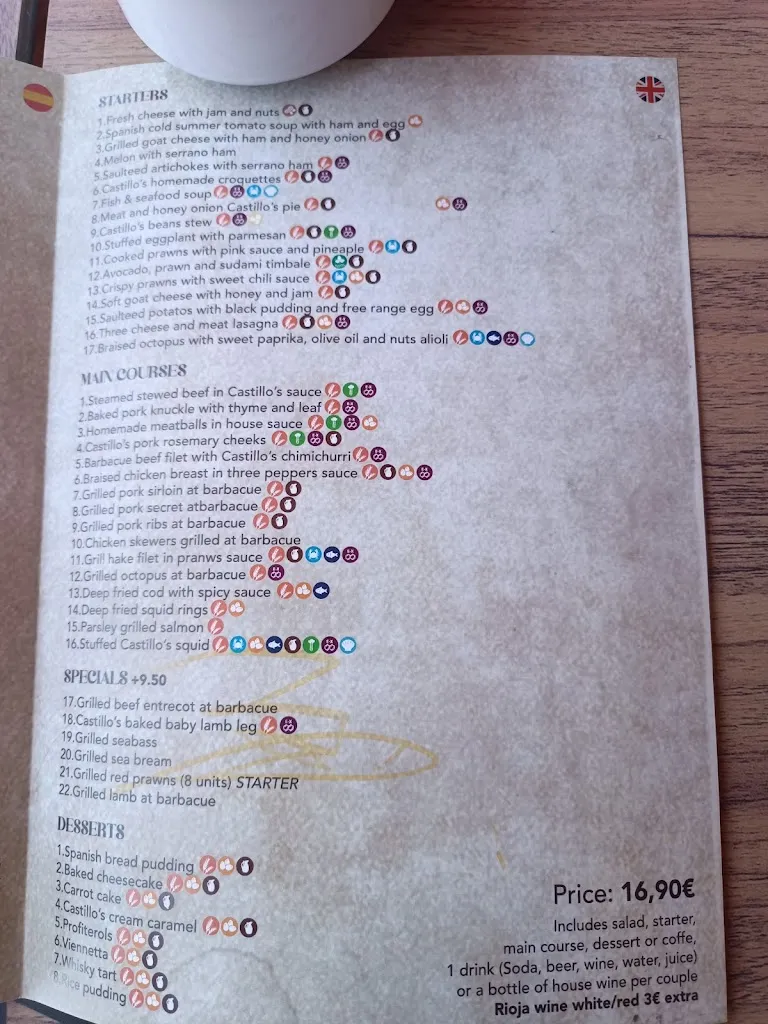 STARTERS
1.Fresh cheese with jam and nuts
2.Spanish cold summer tomato soup with ham and egg
3.Grilled goat cheese with ham and honey onion
4.Melon with serrano ham
5.Saulteed artichokes with serrano ham
6.Castillo's homemade croquettes
7.Fish & seafood soup
8.Meat and honey onion Castillo's pie
9.Castillo's beans stew
10.Stuffed eggplant with parmesan
11.Cooked prawns with pink sauce and pineaple
12.Avocado, prawn and sudami timbale
13.Crispy prawns with sweet chili sauce
14.Soft goat cheese with honey and jam
15.Saulteed potatos with black pudding and free range egg
16.Three cheese and meat lasagna
17.Braised octopus with sweet paprika, olive oil and nuts alioli
MAIN COURSES
1.Steamed stewed beef in Castillo's sauce
2.Baked pork knuckle with thyme and leaf
3.Homemade meatballs in house sauce
4.Castillo's pork rosemary cheeks
5.Barbacue beef filet with Castillo's chimichurri
6.Braised chicken breast in three peppers sauce
7.Grilled pork sirloin at barbacue
8.Grilled pork secret atbarbacue
9.Grilled pork ribs at barbacue
10.Chicken skewers grilled at barbacue
11.Grill hake filet in pranws sauce
12.Grilled octopus at barbacue
13.Deep fried cod with spicy sauce
14.Deep fried squid rings
15.Parsley grilled salmon
16.Stuffed Castillo's squid
SPECIALS +9.50
17.Grilled beef entrecot at barbacue
18.Castillo's baked baby lamb leg
19.Grilled seabass
20.Grilled sea bream
21.Grilled red prawns (8 units) STARTER
22.Grilled lamb at barbacue
DESSERTS
1.Spanish bread pudding
2.Baked cheesecake
3.Carrot cake
4.Castillo's cream caramel
5.Profiterols
6.Viennetta
7.Whisky tart
8.Rice pudding
Price: 16,90€
Includes salad, starter,
main course, dessert or coffe,
1 drink (Soda, beer, wine, water, juice)
or a bottle of house wine per couple
Rioja wine white/red 3€ extra